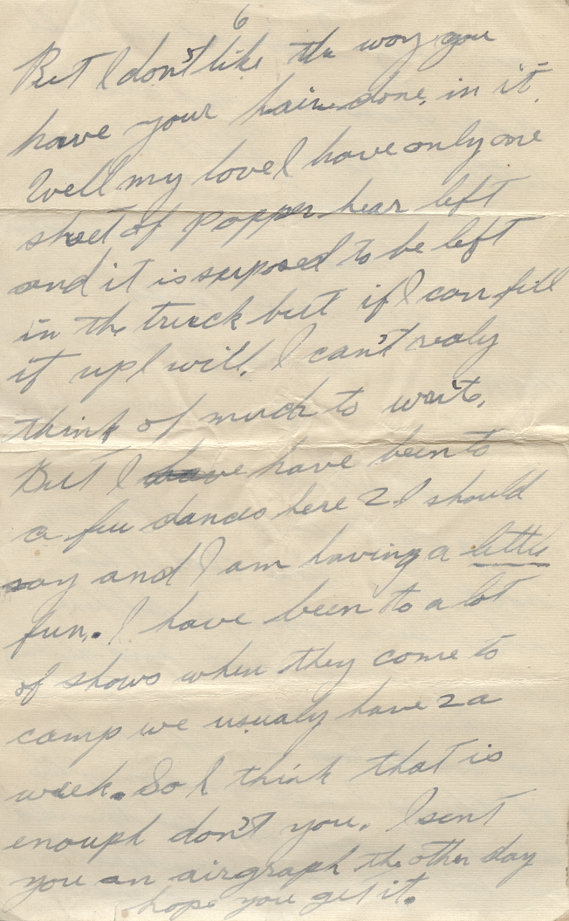 6
But I don't like the way you
have your hair done, in it.
Well my love I have only one
sheet of papper hear left
and it is suposed to be left
in the truck but if I can fill
it up I will. I can't realy
think of much to write.
But I have have been to
a few dances here 2 I should
say and I am having a little
fun. I have been to a lot
of shows when they come to
camp we usualy have 2 a
week. So I think that is
enough don't you. I sent
you an airgraph the other day
hope you get it.